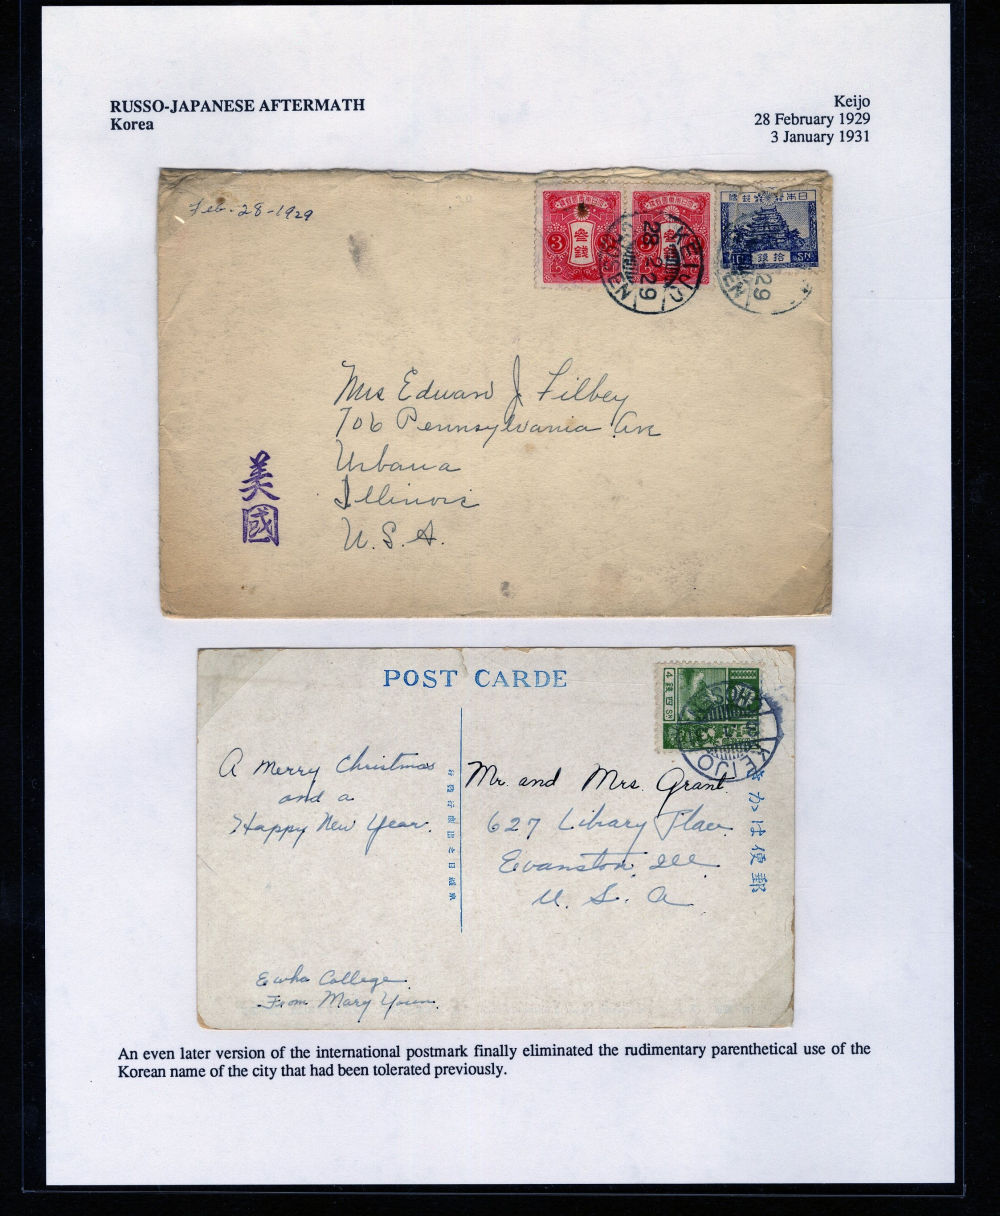 RUSSO-JAPANESE AFTERMATH
Korea
Keijo
28 February 1929
3 January 1931
Feb-28-1929
3 叁銭
3
KEIJO
28 2 29
日本
拾銭
SN
29
Mrs Edward J Filbey
706 Pennsylvania Ave
Urbana
Illinois
U.S.A.
美
國
POST CARDE
4 銭四 Sn
KEIJO
A Merry Christmas
and a
Happy New Year.
Mr. and Mrs. Grant
627 Library Place
Evanston, Ill
U. S. A
郵便はか
Ewha College
From Mary Youn
An even later version of the international postmark finally eliminated the rudimentary parenthetical use of the
Korean name of the city that had been tolerated previously.